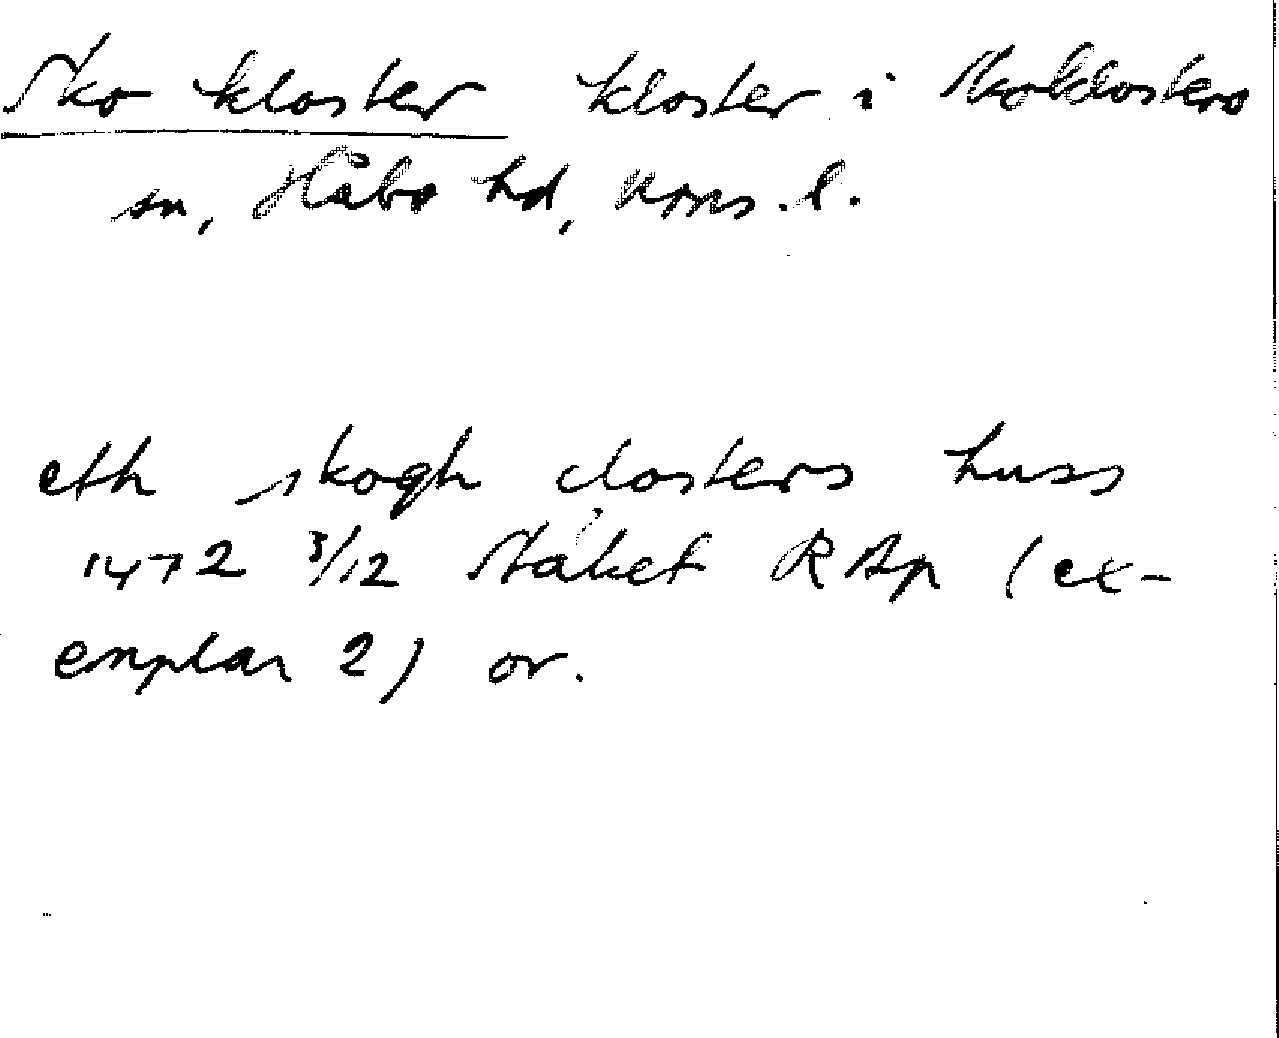 Sko kloster kloster i Skoklosters
sn, Håbo hd, Upps. l.
eth skogh closters huss
1472 3/12 Stäket RAp (ex-
emplar 2) or.